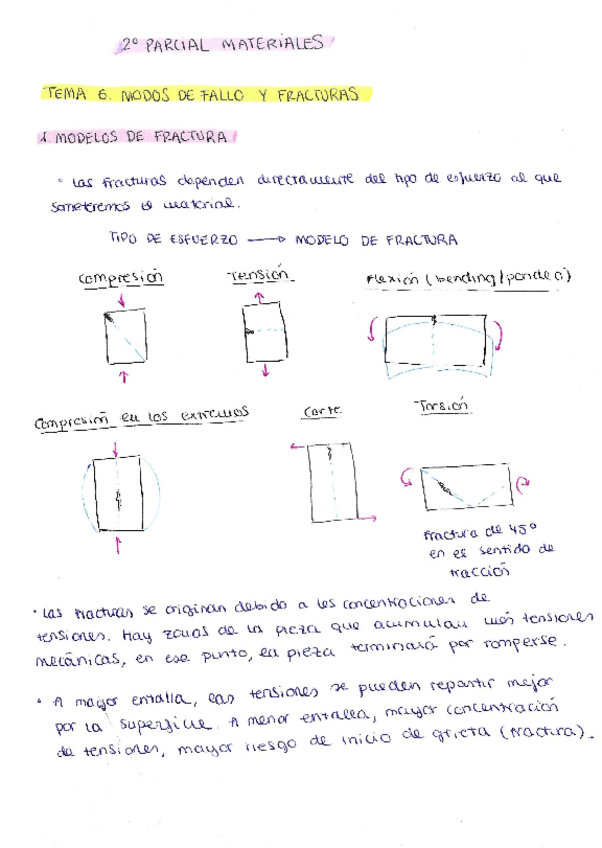 2º PARCIAL MATERIALES
TEMA 6. MODOS DE FALLO Y FRACTURAS
1. MODELOS DE FRACTURA
· Las fracturas dependen directamente del tipo de esfuerzo al que
someteremos el material.
TIPO DE ESFUERZO → MODELO DE FRACTURA
Compresión
Tensión
Flexión (bending/pandeo)
Compresión en los extremos
Corte
Torsión
Fractura de 45º
en el sentido de
tracción
· Las fracturas se originan debido a las concentraciones de
tensiones. Hay zonas de la pieza que acumulan más tensiones
mecánicas, en ese punto, la pieza terminará por romperse.
· A mayor entalla, las tensiones se pueden repartir mejor
por la superficie. A menor entalla, mayor concentración
de tensiones, mayor riesgo de inicio de grieta (fractura).